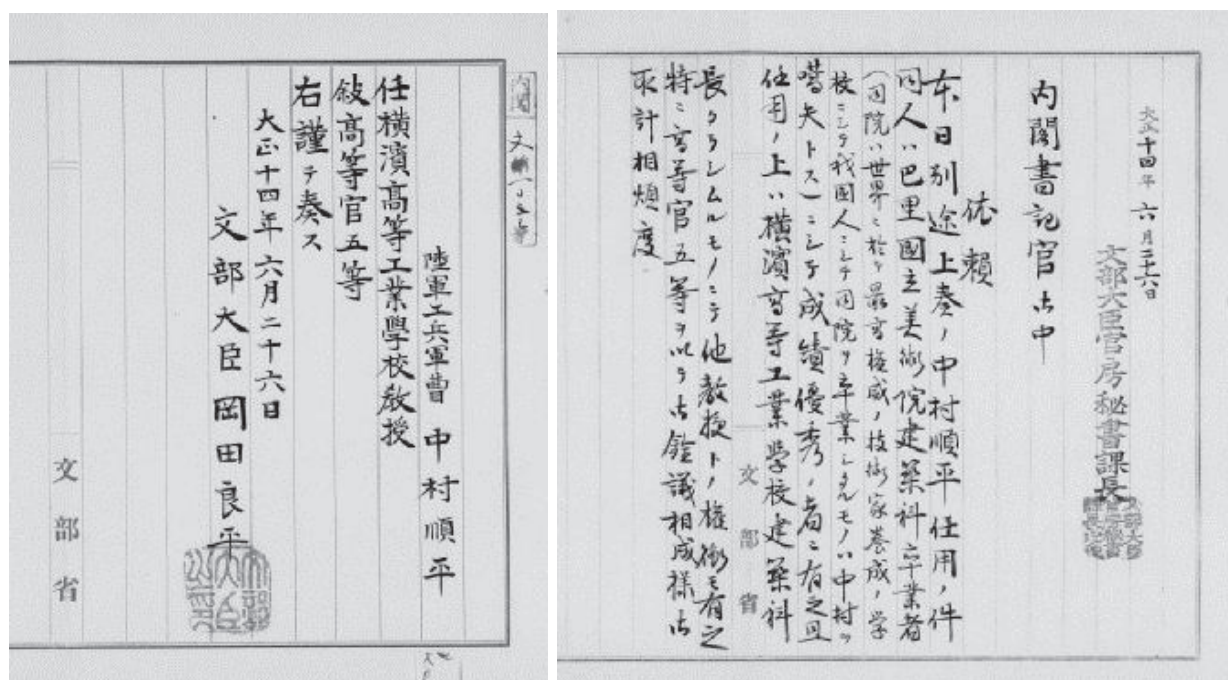 陸軍工兵軍曹 中村順平
任横濱高等工業學校敎授
敍高等官五等
右謹テ奏ス
大正十四年六月二十六日
文部大臣岡田良平
文部省
大正十四年六月二十六日
文部大臣官房秘書課長
内閣書記官御中
依頼
本日別途上奏ノ中村順平任用ノ件
同人ハ巴里國立美術院建築科卒業者
(同院ハ世界ニ於ケル最高権威ノ技術家養成ノ学
校ニシテ我國人ニシテ同院ヲ卒業シタルモノハ中村ヲ
嚆矢トス)ニシテ成績優秀ノ者ニ有之且
任用ノ上ハ横濱高等工業学校建築科
長タラシムルモノニテ他教授トノ権衡モ有之
特ニ高等官五等ヲ以テ御銓議相成様御
取計相煩度
文部省